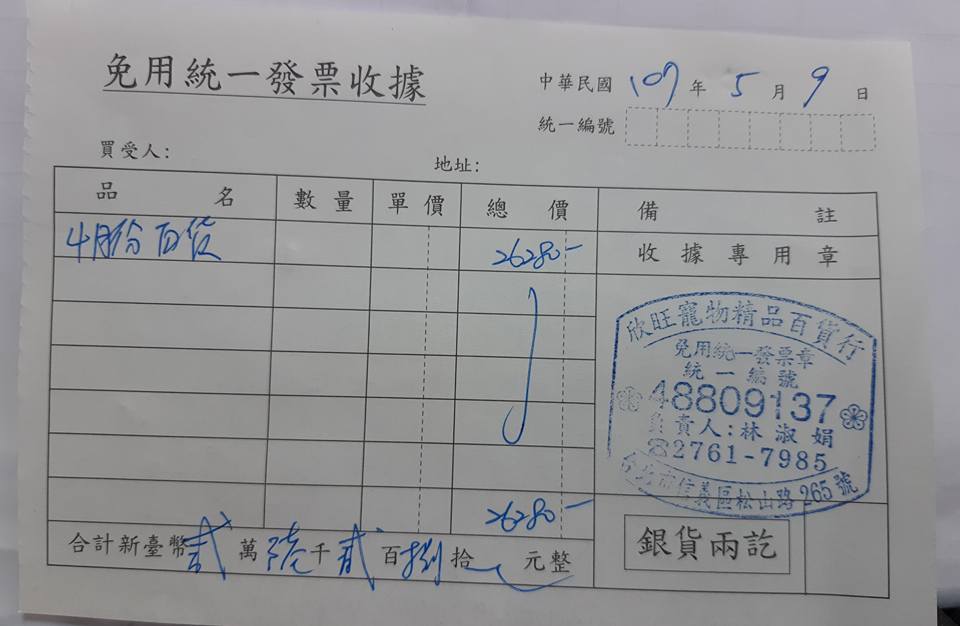 免用統一發票收據
中華民國 107 年 5 月 9 日
統一編號
買受人: 地址:
品名 數量 單價 總價 備註
4月份百货 26280- 收據專用章
欣旺寵物精品百貨行
免用統一發票章
統一編號
48809137
負責人:林淑娟
☎2761-7985
台北市信義區松山路265號
26280-
合計新臺幣 貳 萬 陸 千 貳 百 捌 拾 元整
銀貨兩訖